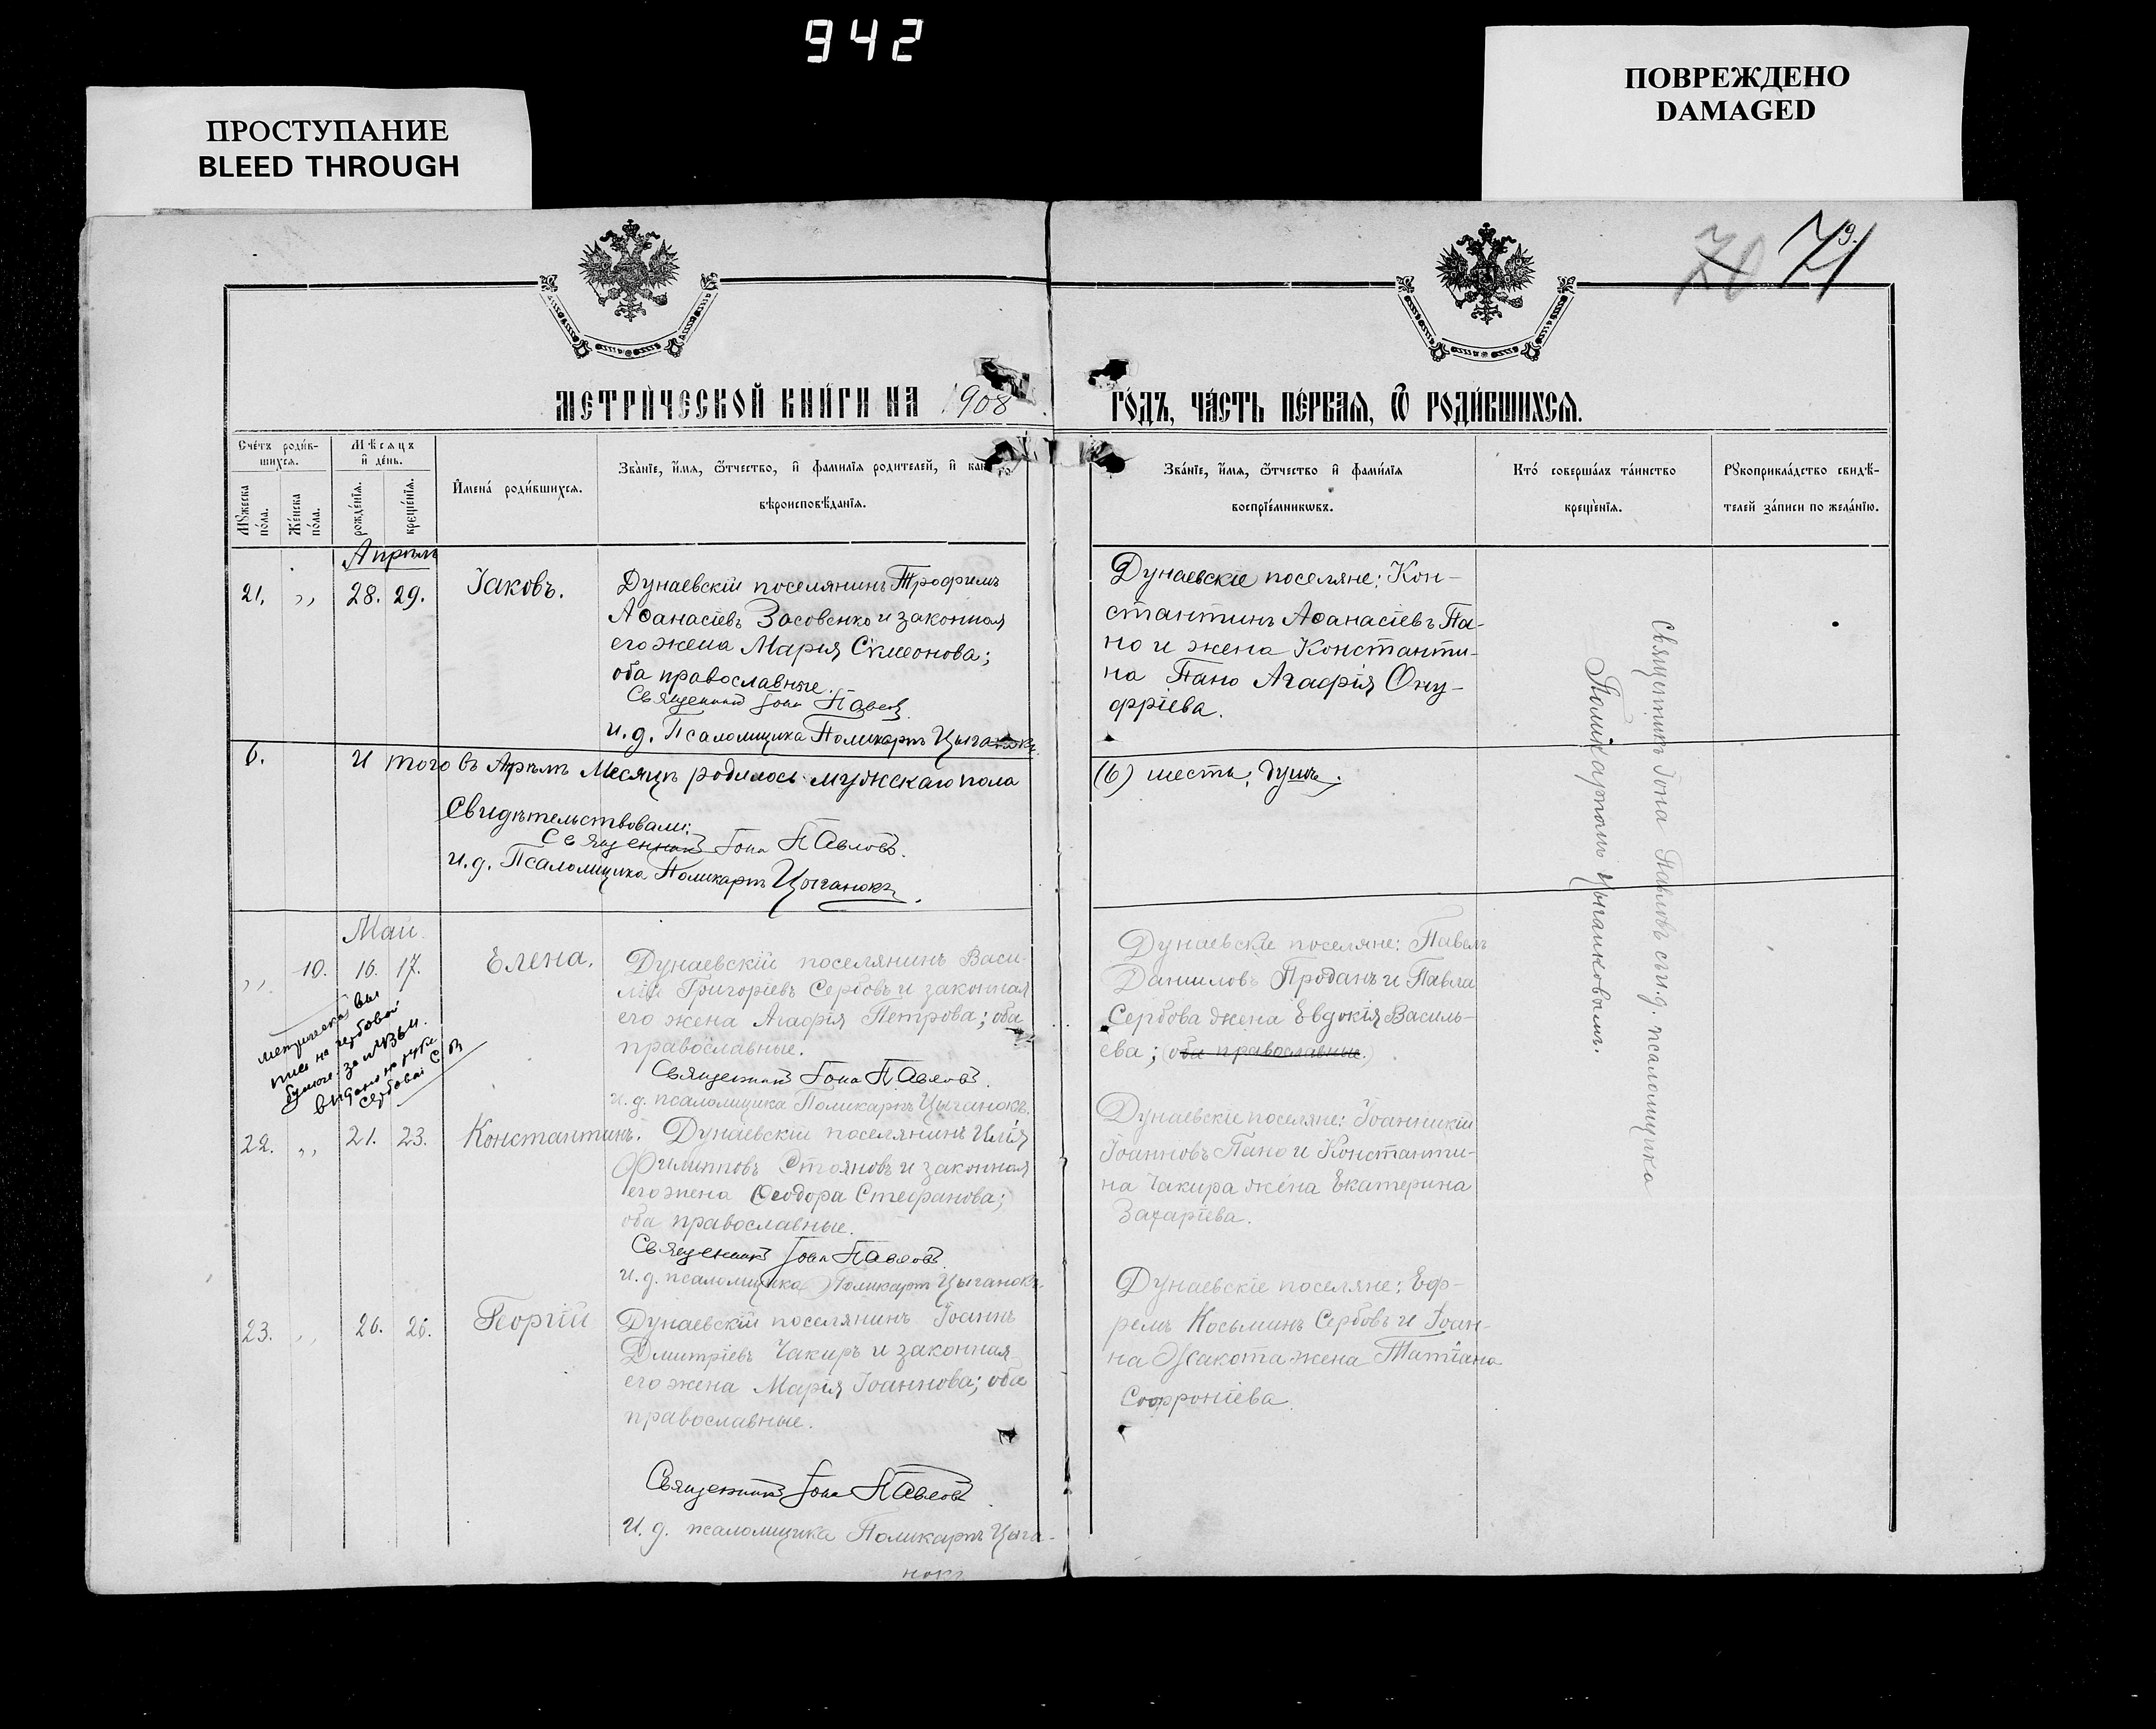 942
ПРОСТУПАНИЕ
BLEED THROUGH
ПОВРЕЖДЕНО
DAMAGED
70 71
МЕТРИЧЕСКОЙ КНИГИ НА 1908
ГОДЪ, ЧАСТЬ ПЕРВАЯ, Ѿ РОДИВШИХСЯ.
Счетъ родив-
шихся.
Мѣсяцъ
и день.
Мужеска
пола.
Женска
пола.
рожденія.
крещенія.
Имена родившихся.
Званіе, имя, ѿтчество, и фамилія родителей, и
вѣроисповѣданія.
Званіе, имя, ѿтчество и фамилія
воспріемниковъ.
Кто совершалъ таинство
крещенія.
Рукоприкладство свидѣ-
телей записи по желанію.
Апрѣль
21. ,, 28. 29. Іаковъ.
Дунаевскій поселянинъ Трофимъ
Аѳанасіевъ Засовенко и законная
его жена Марія Симеонова;
оба православные.
Священникъ Іона Павловъ
и. д. Псаломщика Поликарпъ Цыганокъ.
Дунаевскіе поселяне: Кон-
стантинъ Аѳанасіевъ Па-
но и жена Константи-
на Пано Агафія Ону-
фріева.
6. И того въ Апрѣлѣ Месяцѣ родилось мужскаго пола
(6) шесть душъ.
Свидѣтельствовали:
Священникъ Іона Павловъ.
и. д. Псаломщика Поликарпъ Цыганокъ.
Май.
,, 10. 16. 17. Елена.
Дунаевскій поселянинъ Васи-
лій Григоріевъ Сербовъ и законная
его жена Агафія Петрова; оба
православные.
Священникъ Іона Павловъ.
и. д. псаломщика Поликарпъ Цыганокъ.
Дунаевскіе поселяне: Павелъ
Даниловъ Проданъ и Павла
Сербова жена Евдокія Василь-
ева; (оба православные.)
метрическая вы
пись на гербовой
бумаге за №
выдана на руки
Сербовой
22. ,, 21. 23. Константинъ.
Дунаевскій поселянинъ Илія
Филипповъ Стояновъ и законная
его жена Ѳеодора Стефанова;
оба православные.
Священникъ Іона Павловъ.
и. д. псаломщика Поликарпъ Цыганокъ.
Дунаевскіе поселяне: Іоанникій
Іоанновъ Пано и Константи-
на Чакира жена Екатерина
Захаріева.
23. ,, 26. 26. Георгій
Дунаевскій поселянинъ Іоаннъ
Дмитріевъ Чакиръ и законная
его жена Марія Іоаннова; оба
православные.
Священникъ Іона Павловъ
И. д. псаломщика Поликарпъ Цыга-
нокъ
Дунаевскіе поселяне: Еф-
ремъ Косьминъ Сербовъ и Іоан-
на Жакота жена Татіана
Софроніева.
Священникъ Іона Павловъ съ и. д. псаломщика
Поликарпомъ Цыганковымъ.